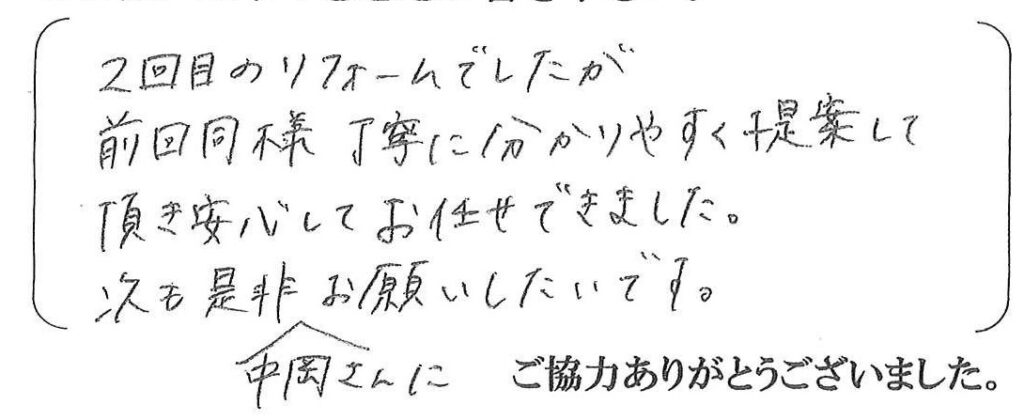 2回目のリフォームでしたが
前回同様 丁寧に分かりやすく提案して
頂き安心してお任せできました。
次も是非お願いしたいです。
中岡さんに
ご協力ありがとうございました。